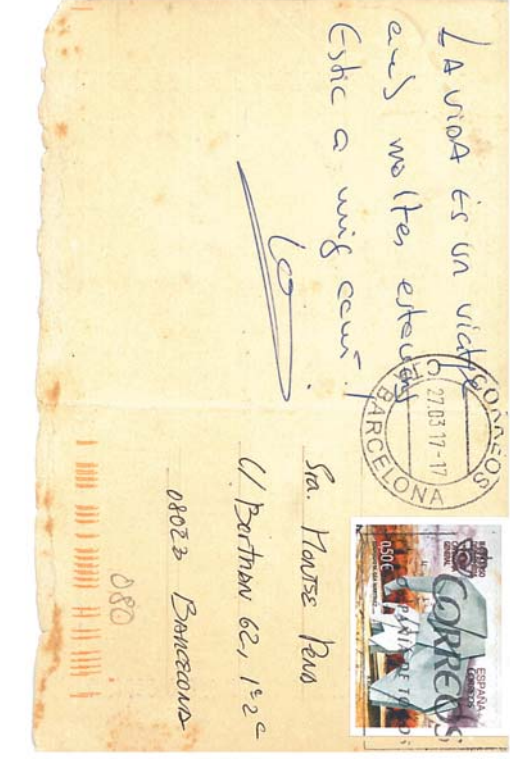 LA VIDA ÉS UN viatge
amb moltes estacions
Estic a mig camí.!
CORREOS
27.03.17-17
BARCELONA
ESPAÑA
CORREOS
0,50€
CORREOS
Sra. MONTSE PENA
C/. BERTRAN 62, 1º 2ª
08023 BARCELONA
080